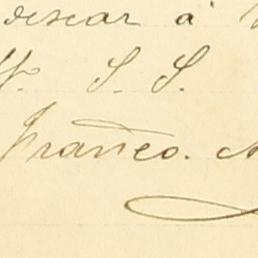 desear á
S. S.
Franco.